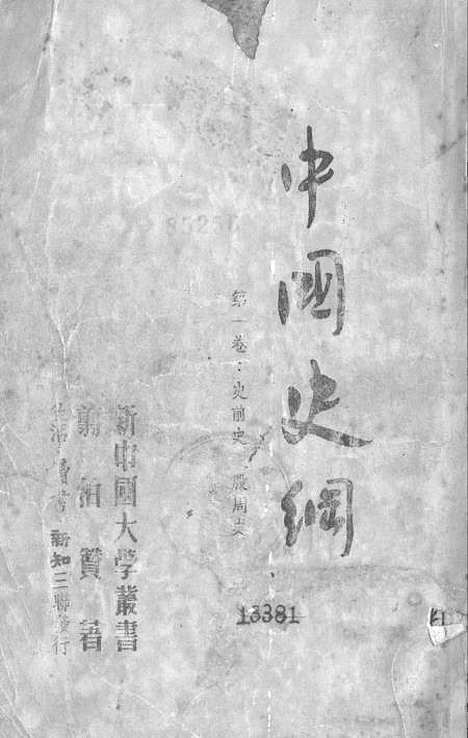 中國史綱
第一卷：史前史 殷周史
新中國大學叢書
翦伯贊著
生活 讀書 新知三聯發行
13381